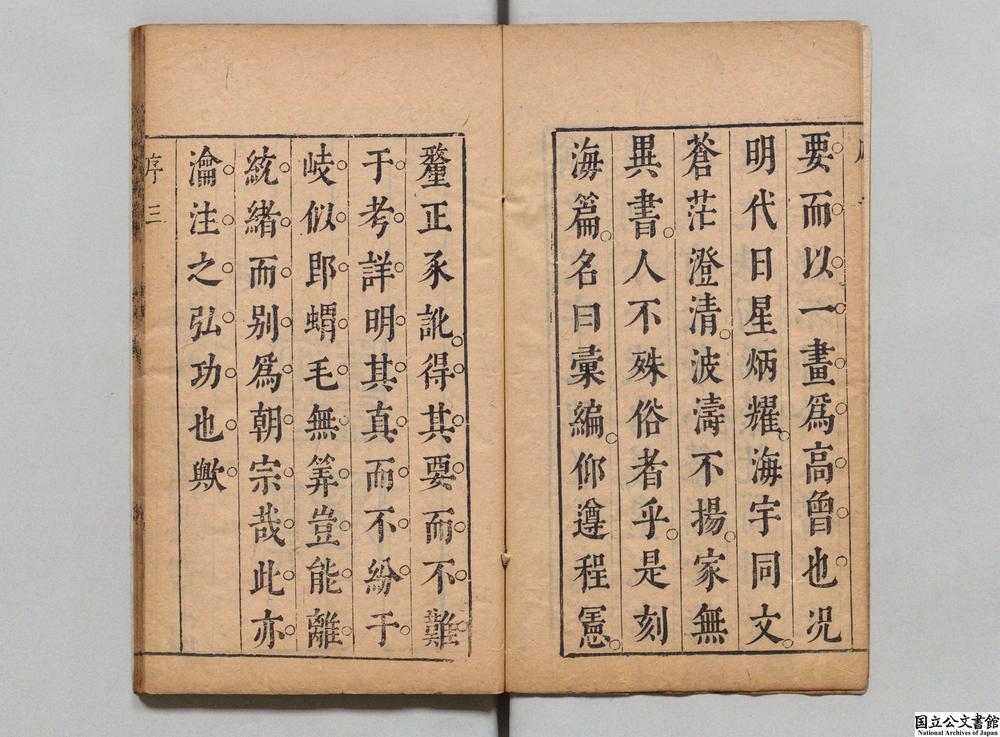 要而以一畫爲高曾也况
明代日星炳耀海宇同文
蒼茫澄清波濤不揚家無
異書人不殊俗者乎是刻
海篇名曰彙編仰遵程憲
釐正豕訛得其要而不難
于考詳明其真而不紛于
岐似即蝟毛無筭豈能離
統緒而别爲朝宗哉此亦
瀹注之弘功也歟
序 三
国立公文書館
National Archives of Japan